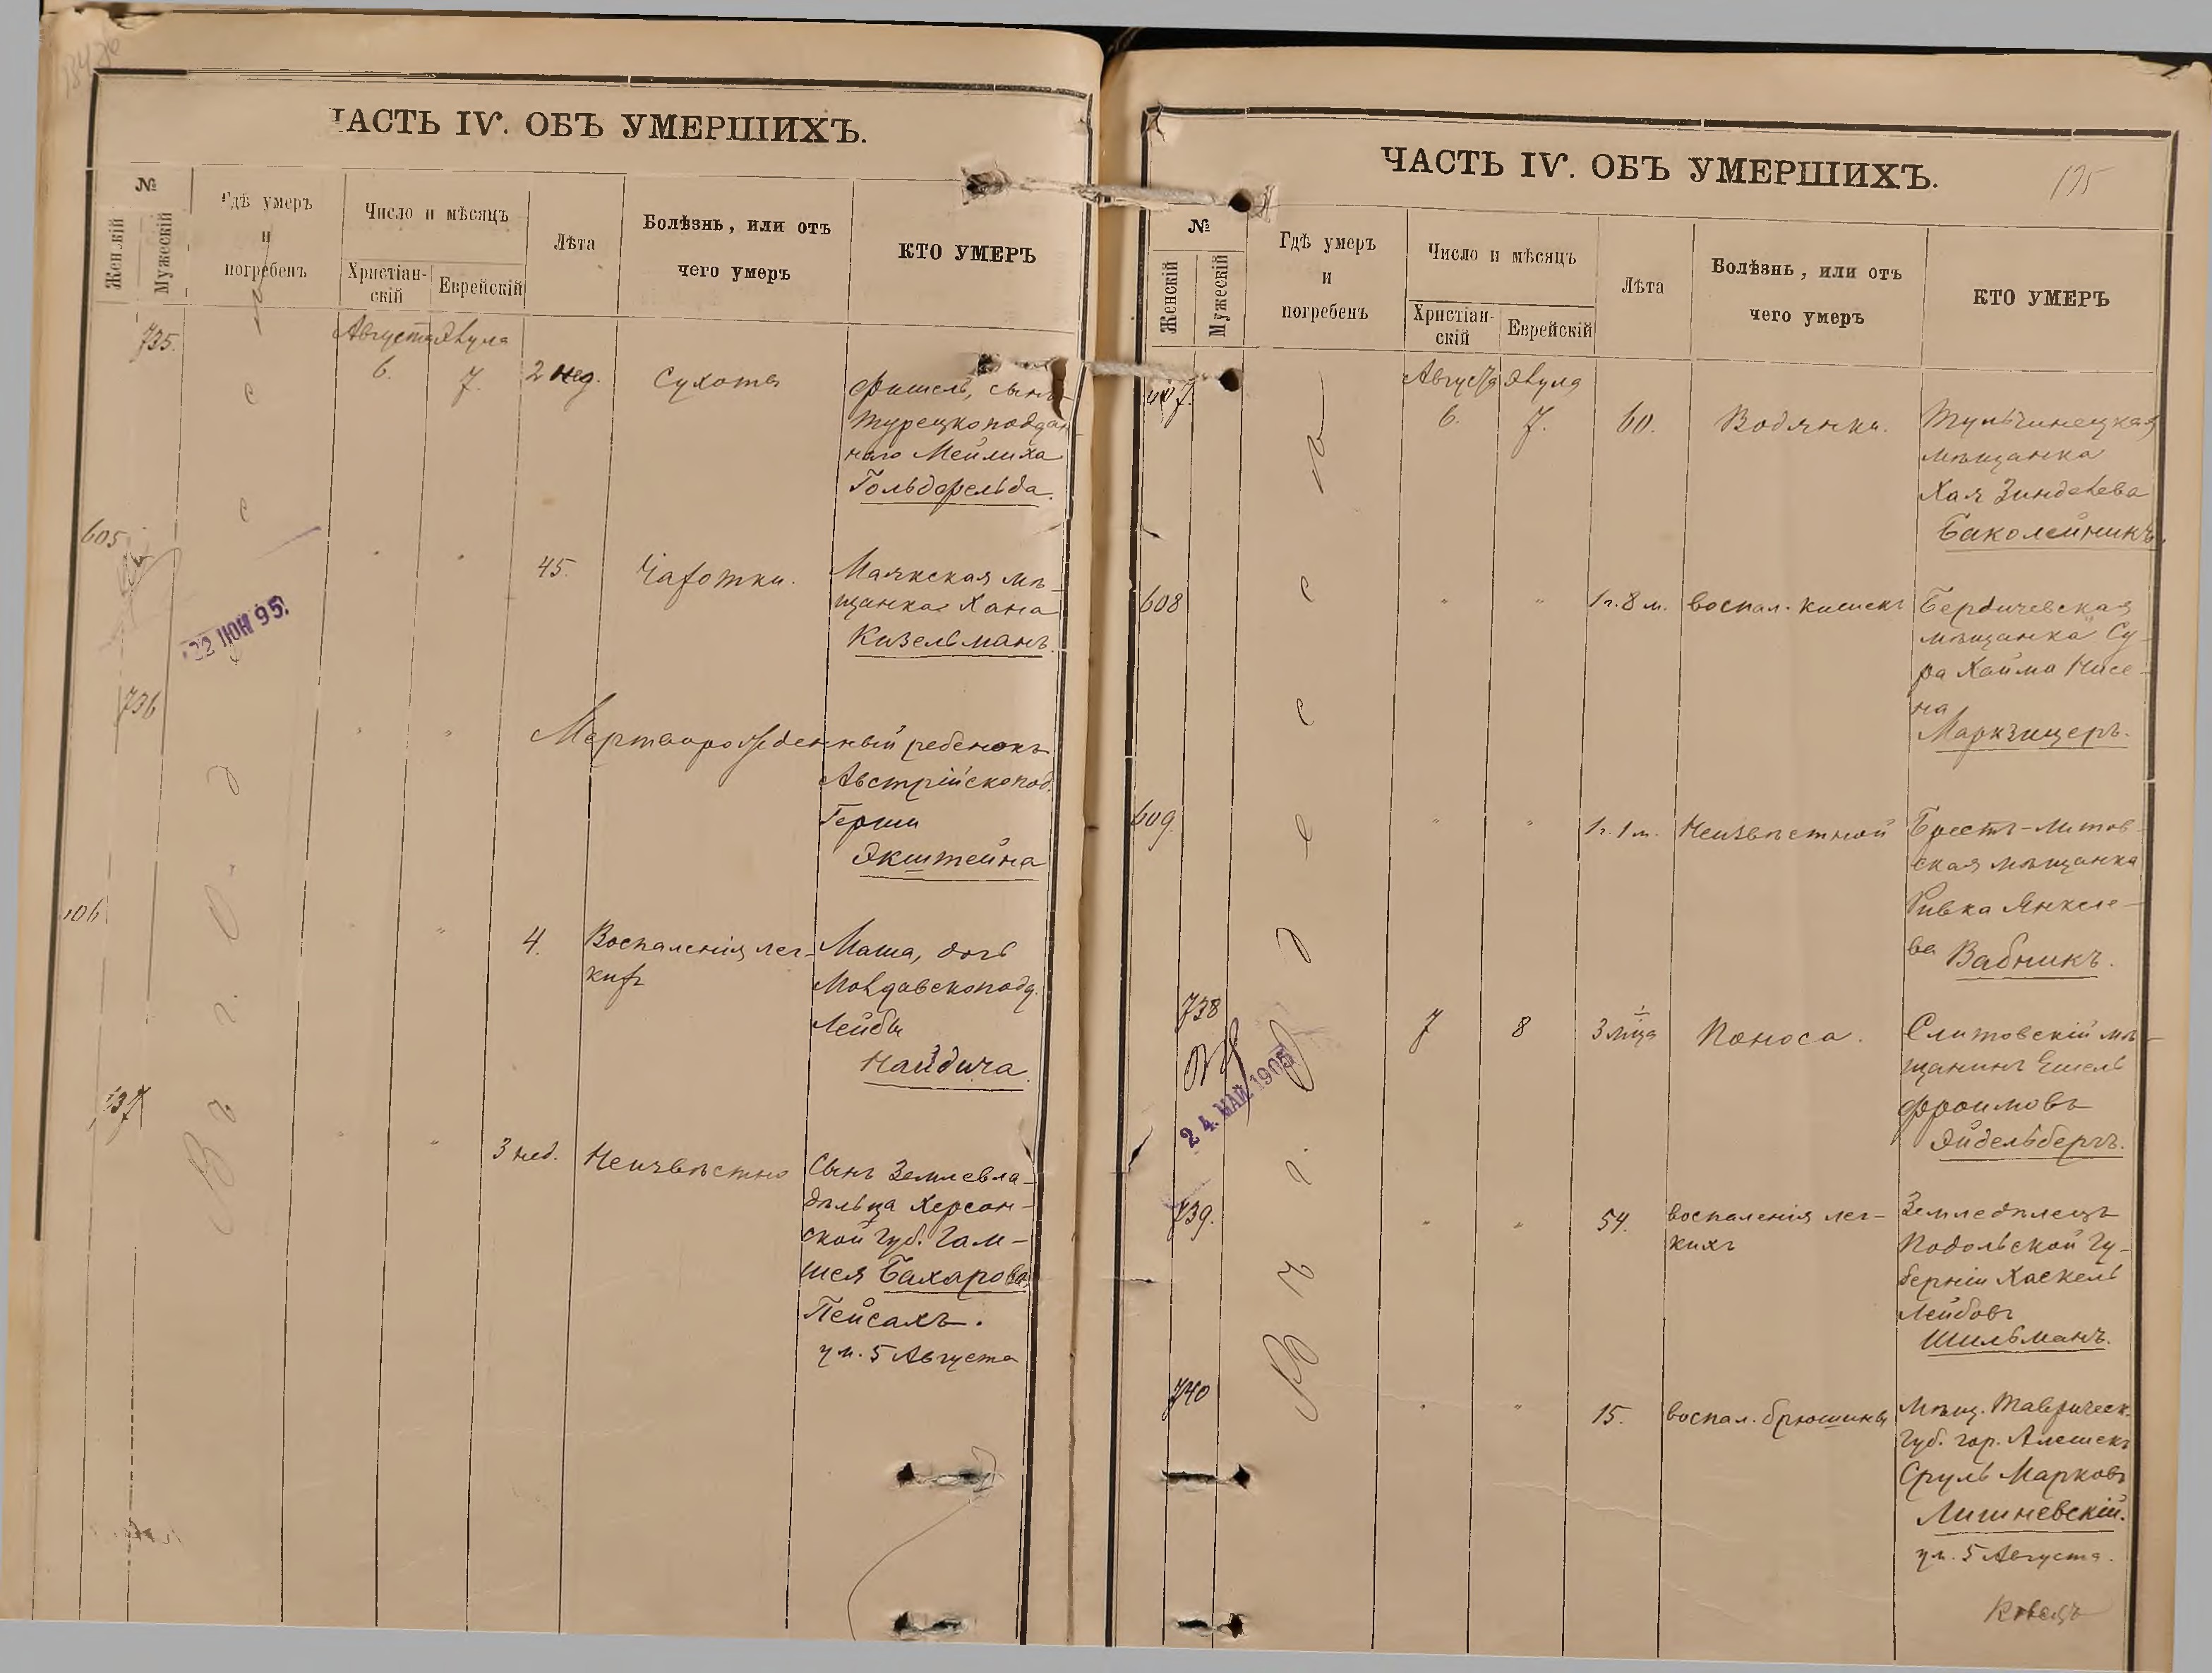 ЧАСТЬ IV. ОБЪ УМЕРШИХЪ.
№
Женскій
Мужескій
Гдѣ умеръ
и
погребенъ
Число и мѣсяцъ
Христіан-
скій
Еврейскій
Лѣта
Болѣзнь, или отъ
чего умеръ
КТО УМЕРЪ
В ъ г. О д е с с
735.
Августа
Элула
6.
7.
2 нед.
Сухоты
Фишель, сынъ
Турецкоподдан-
наго Мейлиха
Гольдфельда.
605
"
"
45.
Чахотки.
Маякская мѣ-
щанка Хана
Кизельманъ.
22 ІЮН 95.
736
"
"
Мертворожденный ребенокъ
Австрійскопод.
Герша
Экштейна
606
"
"
4.
Воспаленія лег-
кихъ
Маша, дочь
Молдавскоподд.
Лейбы
Найдича.
737
"
"
3 нед.
Неизвѣстно
Сынъ Землевла-
дѣльца Херсон-
ской губ. Гам-
шея Бахарова
Пейсахъ.
ум. 5 Августа
ЧАСТЬ IV. ОБЪ УМЕРШИХЪ.
135
№
Женскій
Мужескій
Гдѣ умеръ
и
погребенъ
Число и мѣсяцъ
Христіан-
скій
Еврейскій
Лѣта
Болѣзнь, или отъ
чего умеръ
КТО УМЕРЪ
В ъ г. О д е с с
607.
Августа
Элула
6.
7.
60.
Водянки.
Тульчинецкая
мѣщанка
Хая Зинделева
Баколейникъ.
608
"
"
1 г. 8 м.
воспал. кишекъ
Бердичевская
мѣщанка Су-
ра Хайма Нисе-
на
Маркзицеръ.
609.
"
"
1 г. 1 м.
Неизвѣстной
Брестъ-Литов-
ская мѣщанка
Ривка Янкеле-
ва Вабникъ.
738
7
8
3 м-ца
Поноса.
мѣ-
щанинъ Ешель
Фроимовъ
Эйдельбергъ.
24. МАЙ 1905
739.
"
"
54.
воспаленія лег-
кихъ
Земледѣлецъ
Подольской Гу-
берніи Хаскель
Лейбовъ
Шильманъ.
740
"
"
15.
воспал. брюшины
Мѣщ. Таврическ.
губ. гор. Алешекъ
Сруль Марковъ
Лишневскій.
ум. 5 Августа.